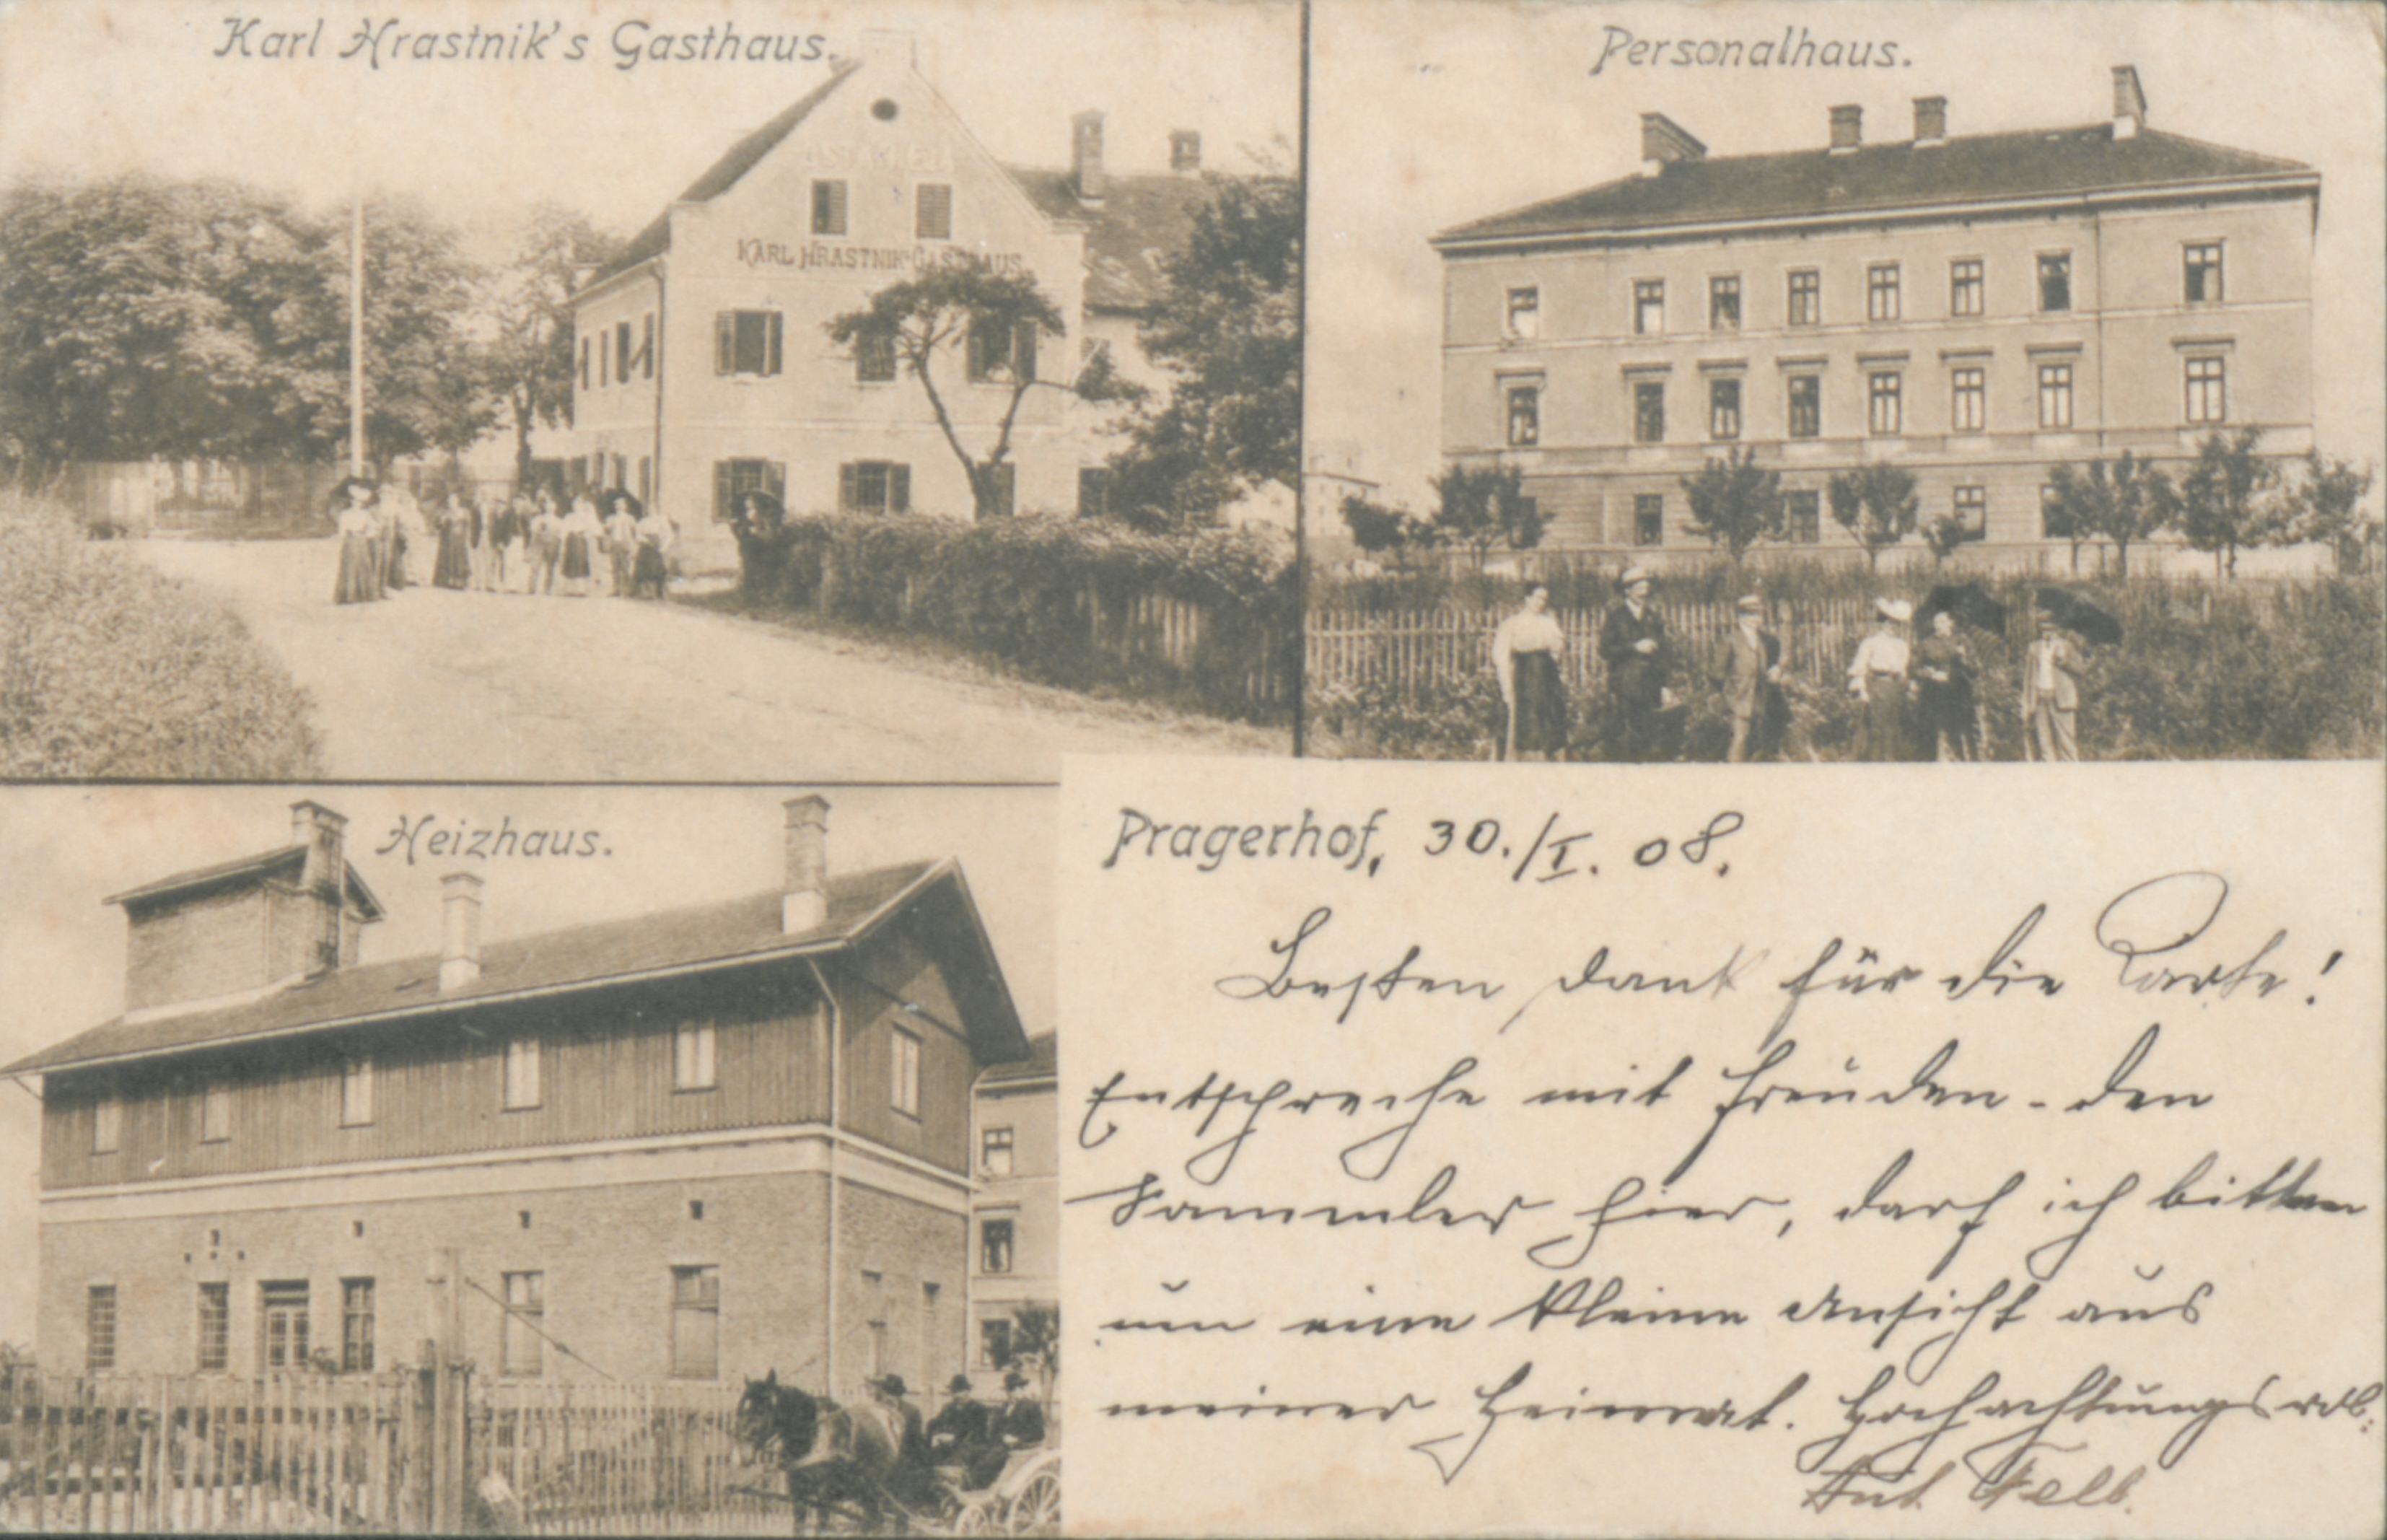 Karl Hrastnik's Gasthaus.
Personalhaus.
KARL HRASTNIK'S GASTHAUS
Heizhaus.
Pragerhof, 30./I. 08.
Besten Dank für die Karte!
Entspreche mit Freuden - den
Sammler hier, darf ich bitten
um eine kleine Ansicht aus
meiner Heimat. Hochachtungsvoll:
Ant. Felb.